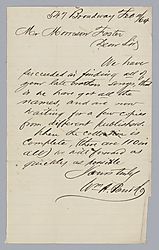 547 Broadway Dec 10/64
Mr Morrison Foster
Dear Sir,
We have
succeeded in finding all of
your late brothers songs, that
is we have got all the
names, and are now
waiting for a few copies
from different publishers.
When the collection is
complete, (there are 110 in
all) we will forward as
quickly as possible
Yours truly
Wm A. Pond & Co